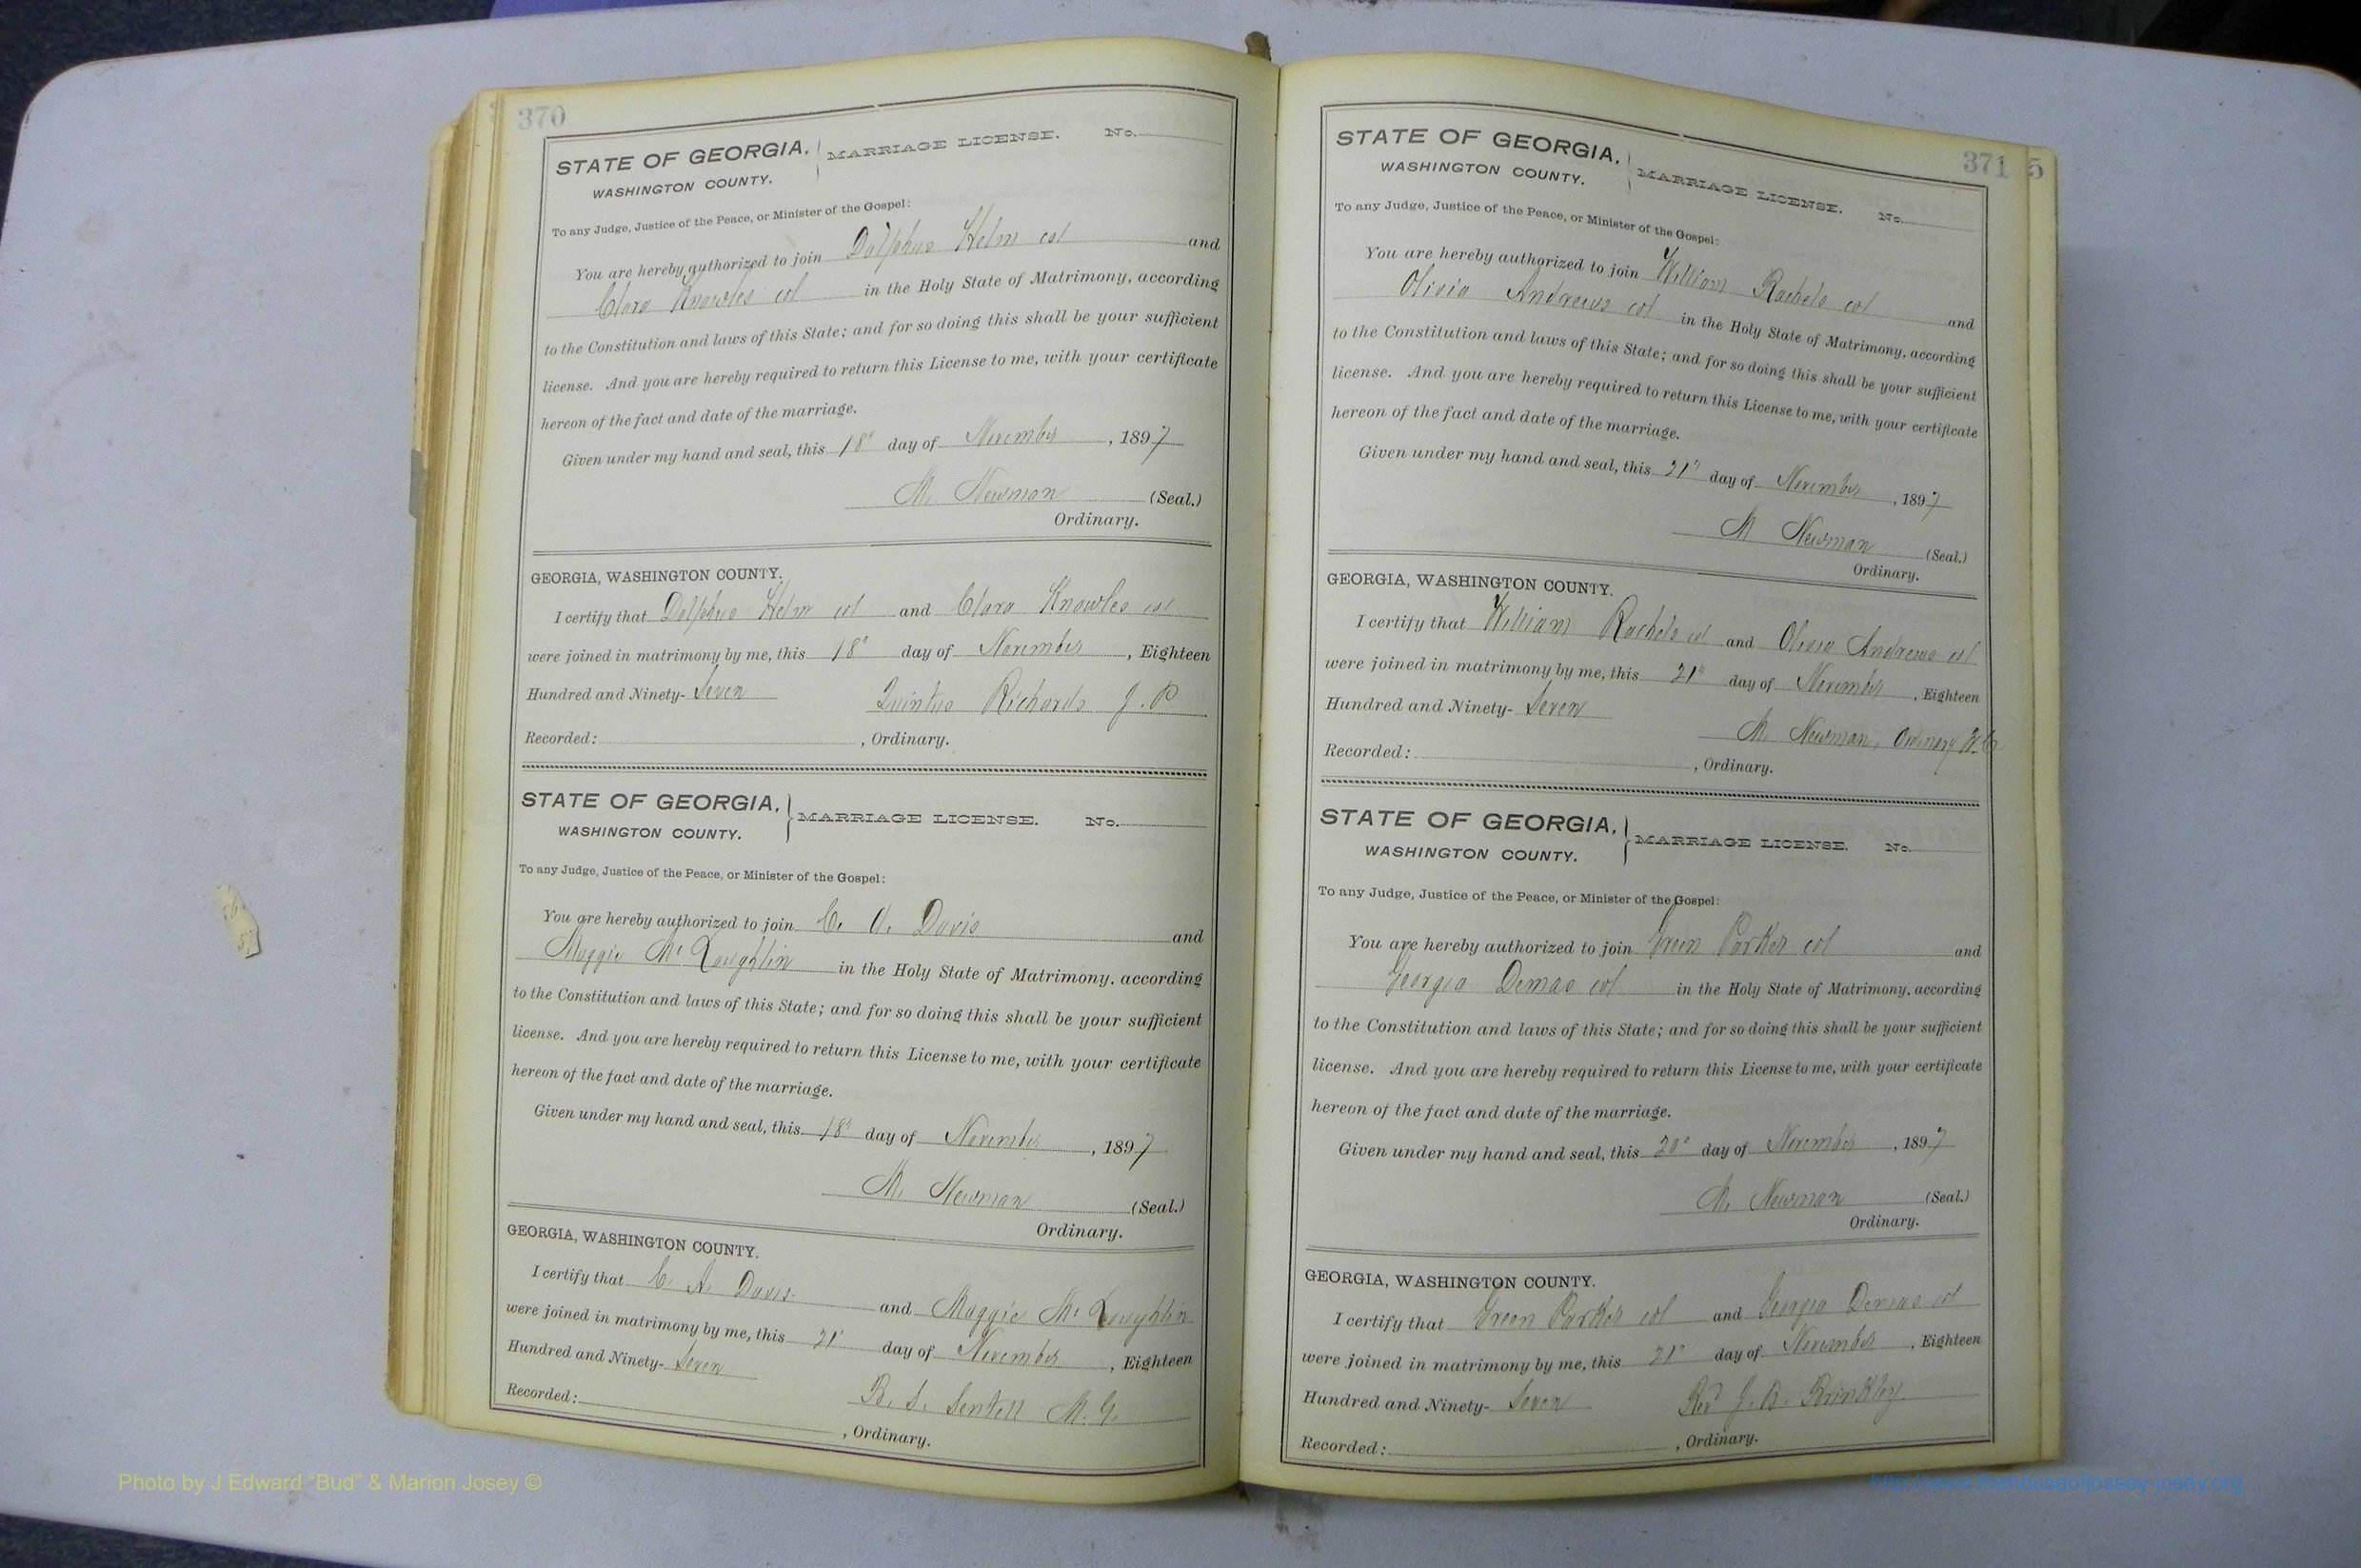 370
STATE OF GEORGIA, MARRIAGE LICENSE. No.
WASHINGTON COUNTY.
To any Judge, Justice of the Peace, or Minister of the Gospel:
You are hereby authorized to join Dolphus Helm col and
Clara Knowles col in the Holy State of Matrimony, according
to the Constitution and laws of this State; and for so doing this shall be your sufficient
license. And you are hereby required to return this License to me, with your certificate
hereon of the fact and date of the marriage.
Given under my hand and seal, this 18" day of November, 1897
M. Newman (Seal.)
Ordinary.
GEORGIA, WASHINGTON COUNTY.
I certify that Dolphus Helm col and Clara Knowles col
were joined in matrimony by me, this 18" day of November, Eighteen
Hundred and Ninety- Seven Quintus Richards J. P
Recorded: , Ordinary.
STATE OF GEORGIA, MARRIAGE LICENSE. No.
WASHINGTON COUNTY.
To any Judge, Justice of the Peace, or Minister of the Gospel:
You are hereby authorized to join C. A. Davis and
Maggie McLaughlin in the Holy State of Matrimony, according
to the Constitution and laws of this State; and for so doing this shall be your sufficient
license. And you are hereby required to return this License to me, with your certificate
hereon of the fact and date of the marriage.
Given under my hand and seal, this 18" day of November, 1897
M. Newman (Seal.)
Ordinary.
GEORGIA, WASHINGTON COUNTY.
I certify that C. A. Davis and Maggie McLaughlin
were joined in matrimony by me, this 21" day of November, Eighteen
Hundred and Ninety- Seven B. S. Sentell M. G.
Recorded: , Ordinary.
371 5
STATE OF GEORGIA, MARRIAGE LICENSE. No.
WASHINGTON COUNTY.
To any Judge, Justice of the Peace, or Minister of the Gospel:
You are hereby authorized to join William Rachels col and
Olivia Andrews col in the Holy State of Matrimony, according
to the Constitution and laws of this State; and for so doing this shall be your sufficient
license. And you are hereby required to return this License to me, with your certificate
hereon of the fact and date of the marriage.
Given under my hand and seal, this 21" day of November, 1897
M Newman (Seal.)
Ordinary.
GEORGIA, WASHINGTON COUNTY.
I certify that William Rachels col and Olivia Andrews col
were joined in matrimony by me, this 21" day of November, Eighteen
Hundred and Ninety- Seven
M. Newman, Ordinary W. Co
Recorded: , Ordinary.
STATE OF GEORGIA, MARRIAGE LICENSE. No.
WASHINGTON COUNTY.
To any Judge, Justice of the Peace, or Minister of the Gospel:
You are hereby authorized to join Green Parker col and
Georgia Demas col in the Holy State of Matrimony, according
to the Constitution and laws of this State; and for so doing this shall be your sufficient
license. And you are hereby required to return this License to me, with your certificate
hereon of the fact and date of the marriage.
Given under my hand and seal, this 20" day of November, 1897
M. Newman (Seal.)
Ordinary.
GEORGIA, WASHINGTON COUNTY.
I certify that Green Parker col and Georgia Demas col
were joined in matrimony by me, this 21" day of November, Eighteen
Hundred and Ninety- Seven Rev J. B. Brinkley
Recorded: , Ordinary.
Photo by J Edward "Bud" & Marion Josey ©